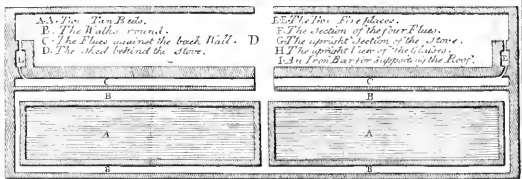 A.A. Two Tan Beds.
B. The Walks round.
C. The Flues against the back Wall.
D. The shed behind the stove.
D
E.E. The two Fireplaces.
F. The Section of the four Flues.
G. The upright Section of the stove.
H. The upright View of the Glasses.
I. An Iron Bar for supporting the Roof.
E
E
C
C
B
B
A
A
B
B